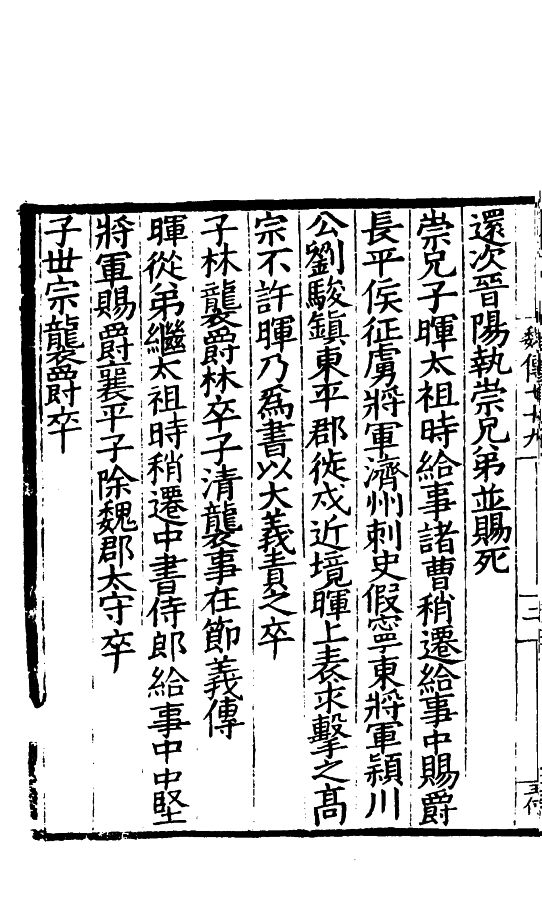 還次晉陽執崇兄弟並賜死
崇兄子暉太祖時給事諸曹稍遷給事中賜爵
長平侯征虜將軍濟州刺史假寧東將軍潁川
公劉駿鎮東平郡徙戍近境暉上表求擊之高
宗不許暉乃爲書以大義責之卒
子林襲爵林卒子清襲事在節義傳
暉從弟繼太祖時稍遷中書侍郎給事中中堅
將軍賜爵襄平子除魏郡太守卒
子世宗襲爵卒